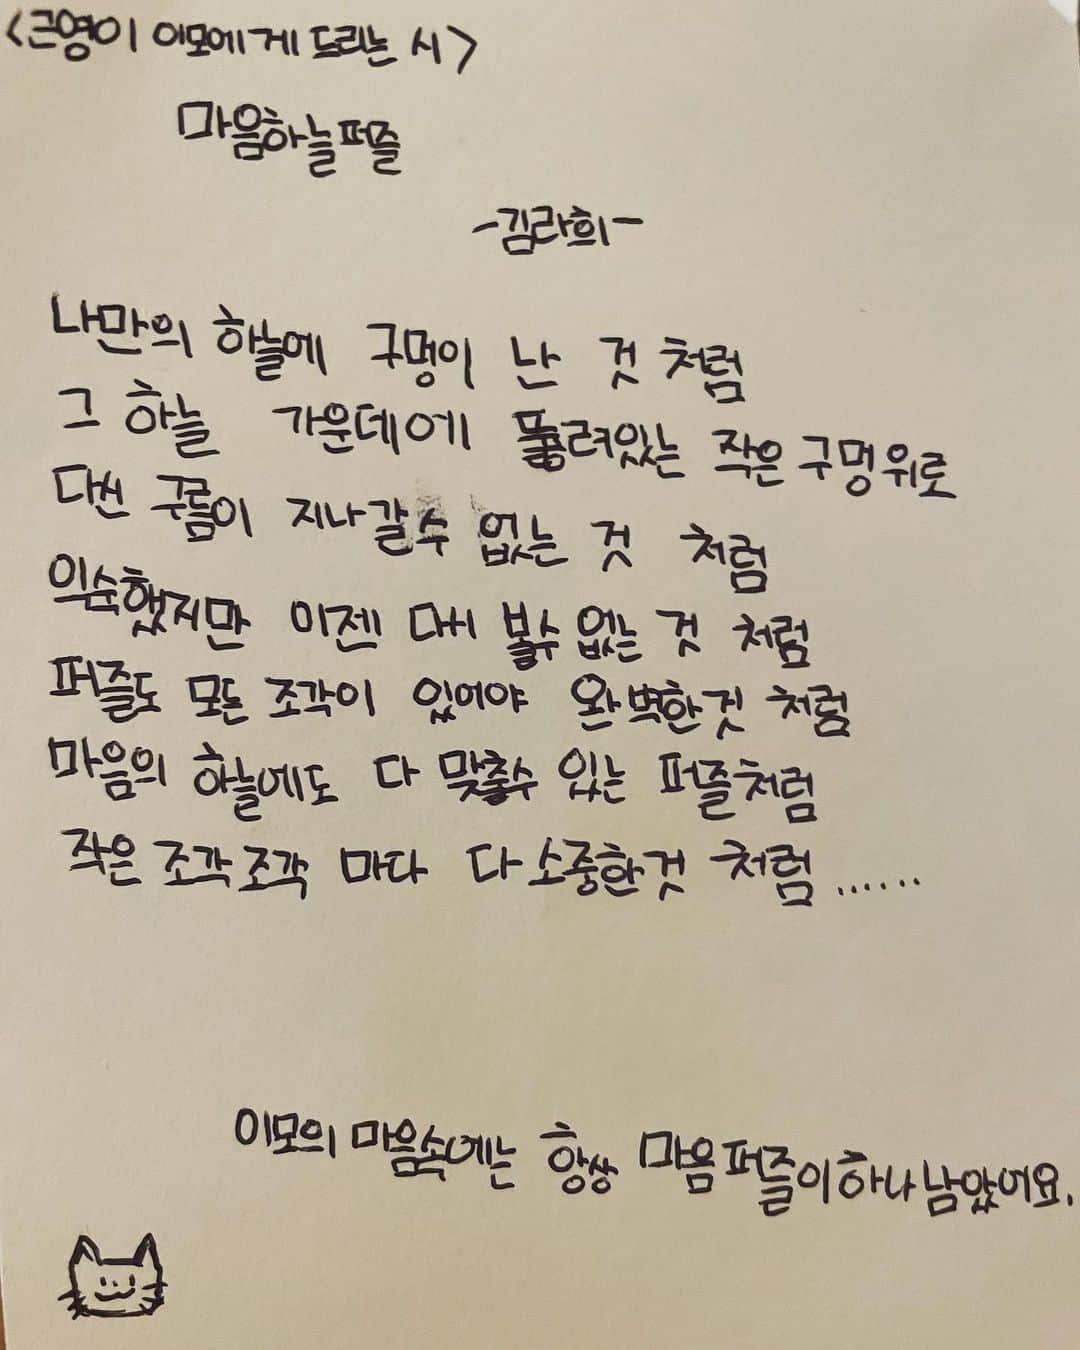 <근영이 이모에게 드리는 시>
마음하늘퍼즐
-김라희-
나만의 하늘에 구멍이 난 것 처럼
그 하늘 가운데에 뚫려있는 작은 구멍위로
다신 구름이 지나갈수 없는 것 처럼
익숙했지만 이젠 다시 볼수 없는 것 처럼
퍼즐도 모든 조각이 있어야 완벽한것 처럼
마음의 하늘에도 다 맞출수 있는 퍼즐처럼
작은 조각조각 마다 다 소중한것 처럼......
이모의 마음속에는 항상 마음퍼즐이하나남았어요.